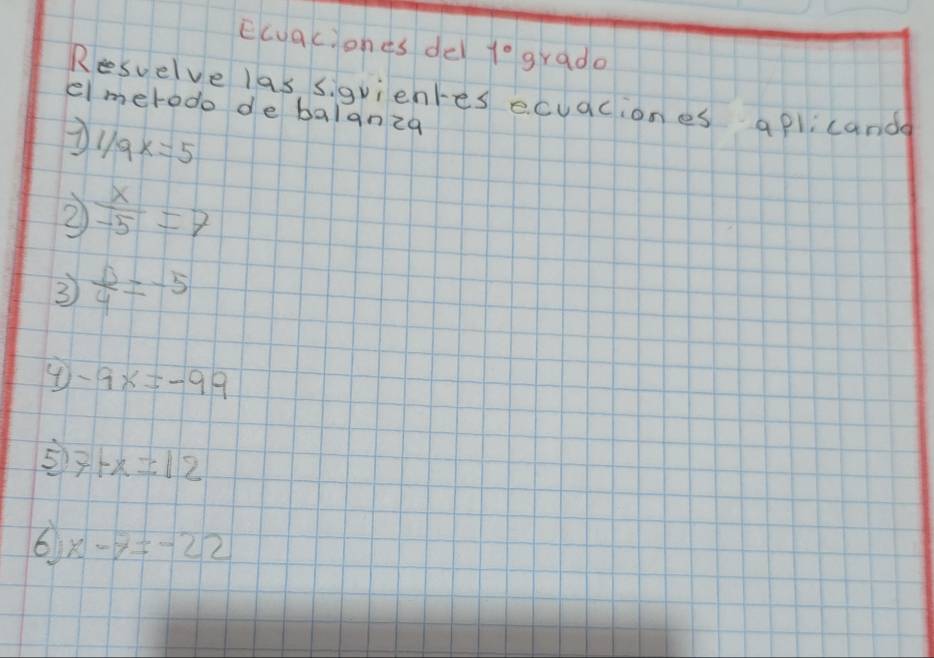 Ecuaciones del 1° grado
Resuelve las siguientes ecuaciones aplicando
el metodo de balanza
1) 1/9x=5
2) x/-5 = 7
3) p/4 = -5
4) -9x=-99
5) 7+x=12
6) x-7=-22